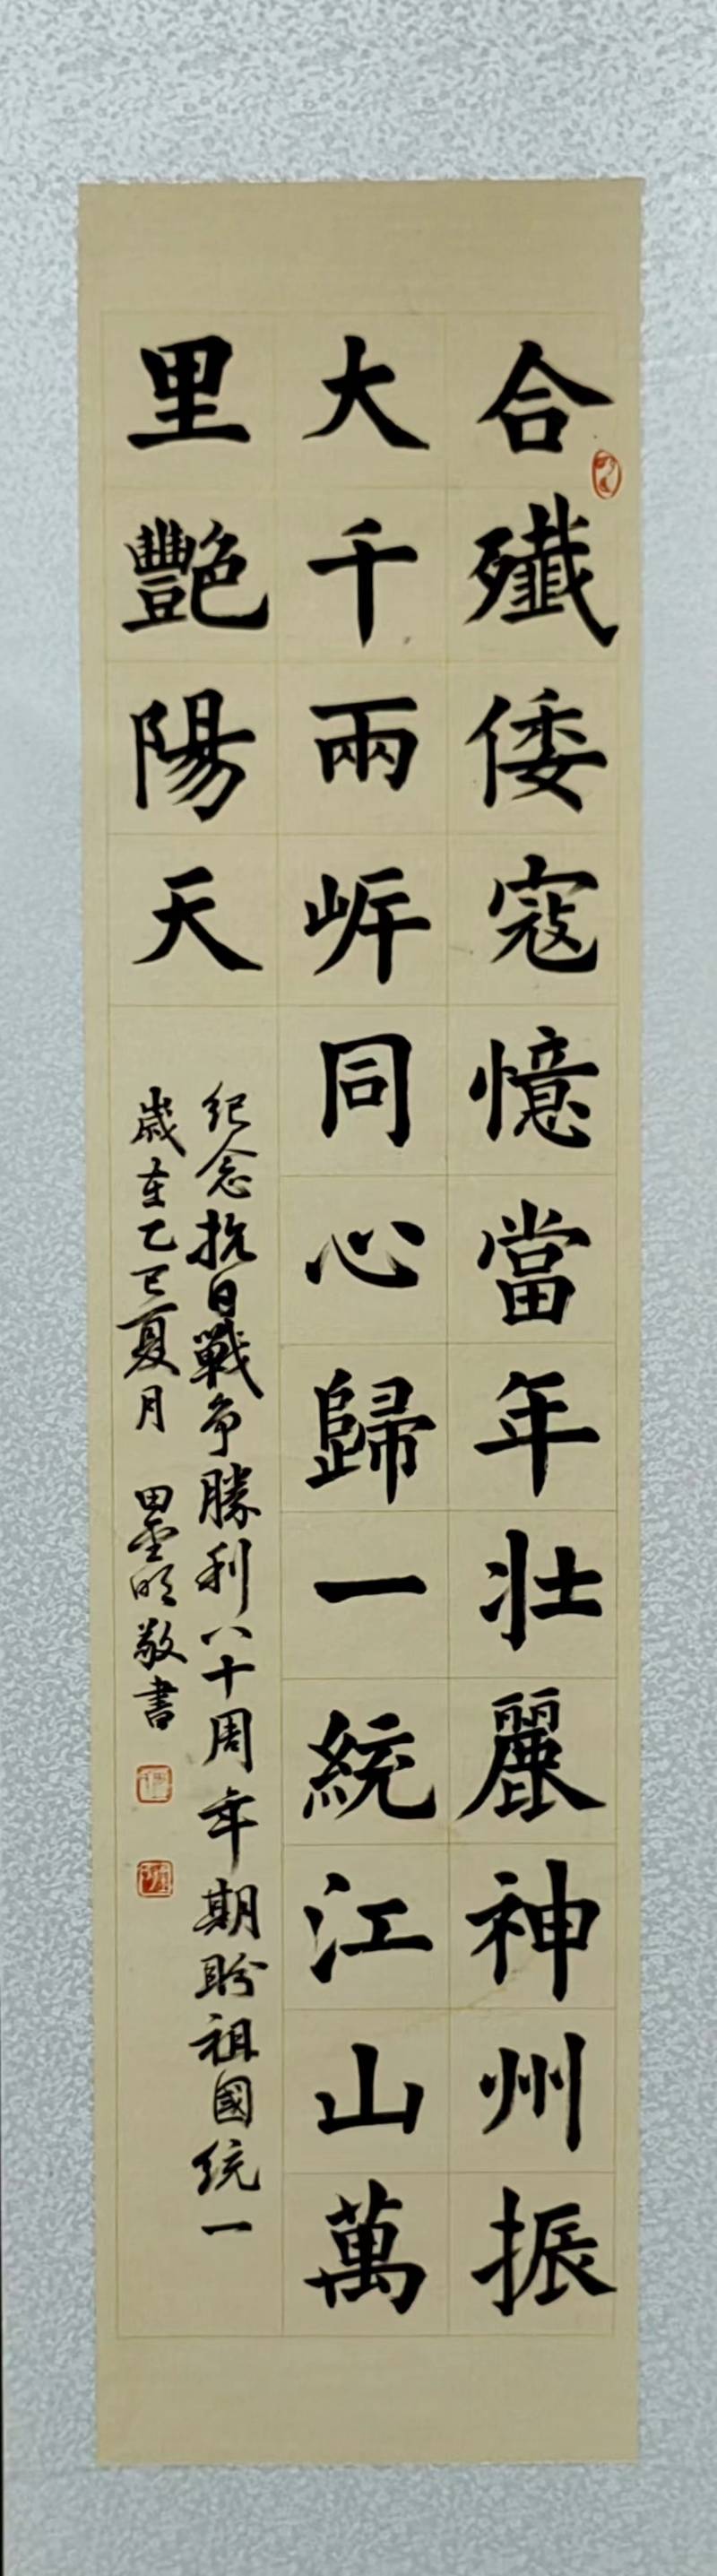 合殲倭寇憶當年壯麗神州振
大千兩岍同心歸一統江山萬
里艷陽天
纪念抗日戰争勝利八十周年期盼祖國统一
歲在乙巳夏月 田墨明敬書